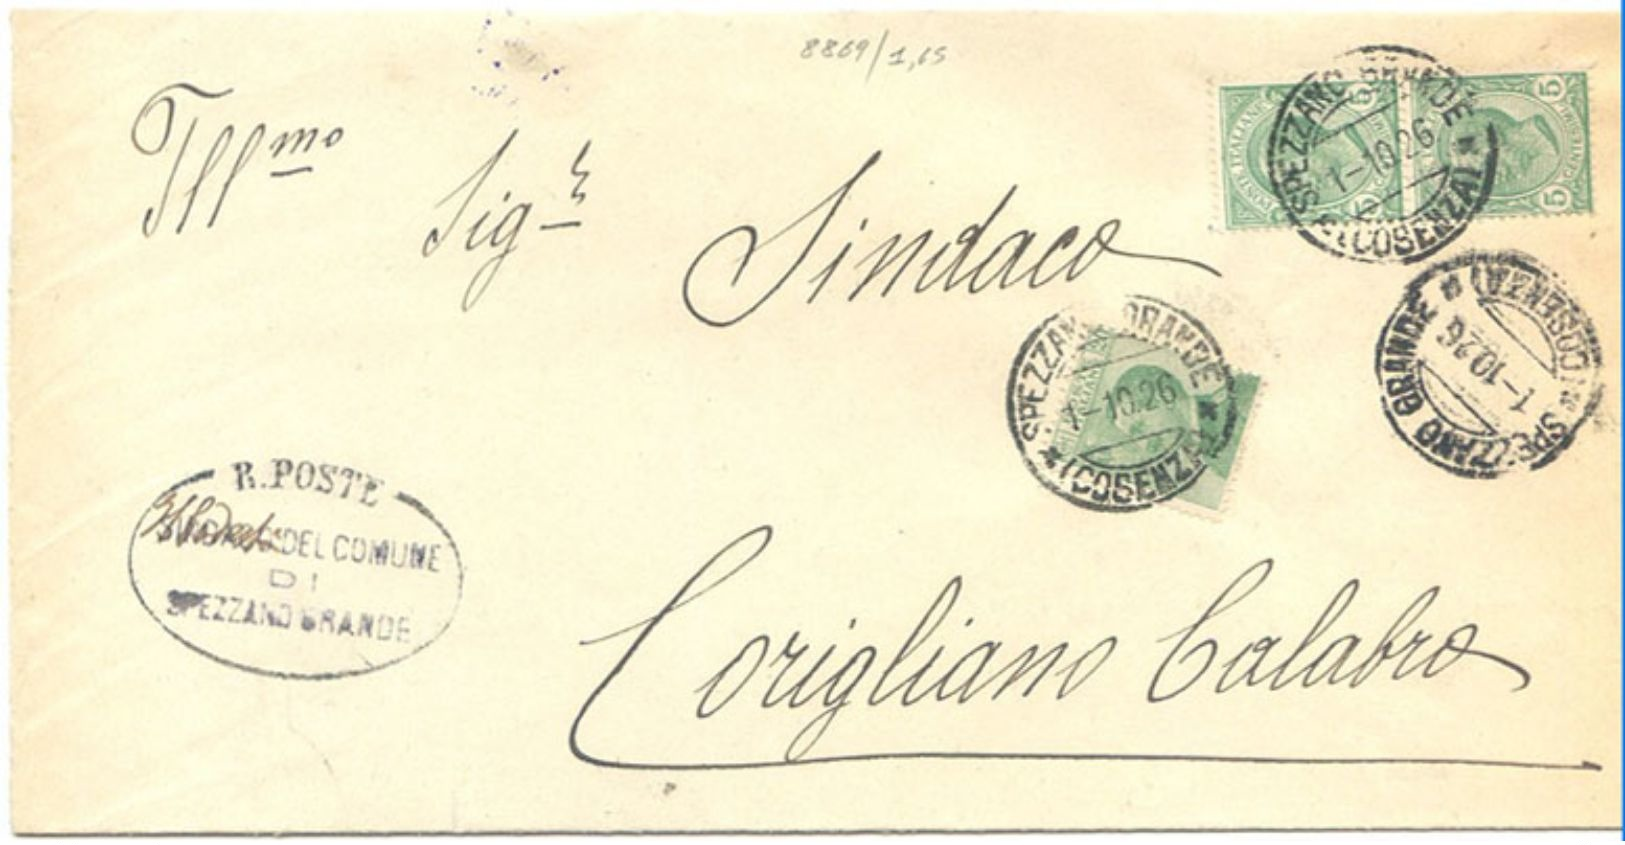 8869/1,65
Illmo Sigr Sindaco
Corigliano Calabro
R. POSTE
SINDACO DEL COMUNE
DI
SPEZZANO GRANDE
POSTE ITALIANE
5 5
SPEZZANO GRANDE
1-10.26
(COSENZA)
SPEZZANO GRANDE
1-10.26
(COSENZA)
SPEZZANO GRANDE
1-10.26
(COSENZA)